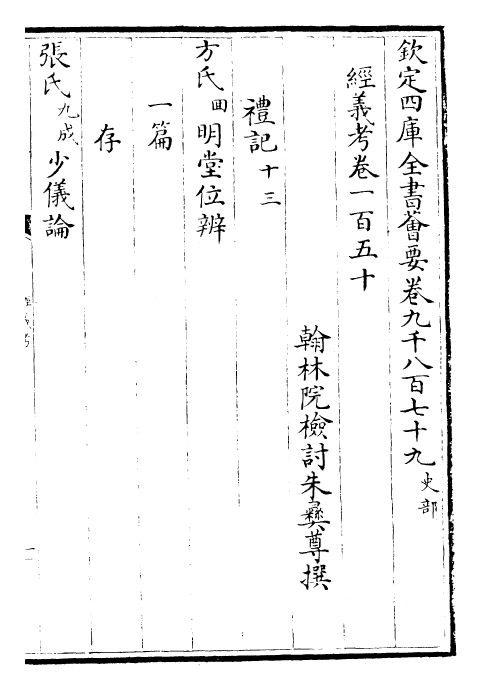 欽定四庫全書薈要卷九千八百七十九 史部
經義考卷一百五十
翰林院檢討朱彝尊撰
禮記十三
方氏回明堂位辨
一篇
存
張氏九成少儀論